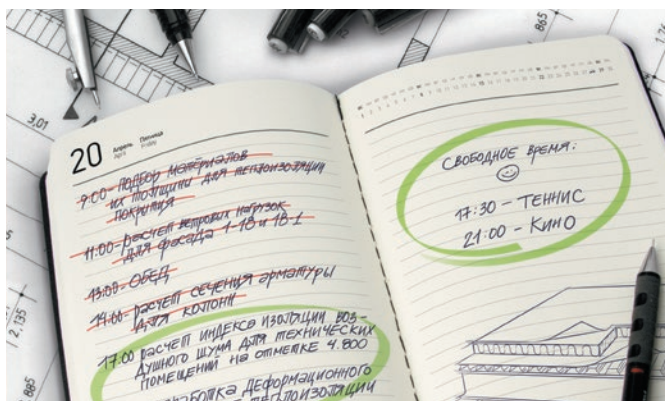 20
Апрель Пятница
April Friday
9:00 - ПОДБОР МАТЕРИАЛОВ
ИХ ТОЛЩИНЫ ДЛЯ ТЕПЛОИЗОЛЯЦИИ
ПОКРЫТИЯ
11:00 - расчет ветровых нагрузок
для фасада 1-18 и 18-1
13:00 - ОБЕД
14:00 - расчет сечения арматуры
для колонн
17:00 расчет индекса изоляции воз-
душного шума для технических
помещений на отметке 4.800
деформационного
теплоизоляции
СВОБОДНОЕ ВРЕМЯ:
17:30 - ТЕННИС
21:00 - КИНО
3,01
865
2,135
885
865